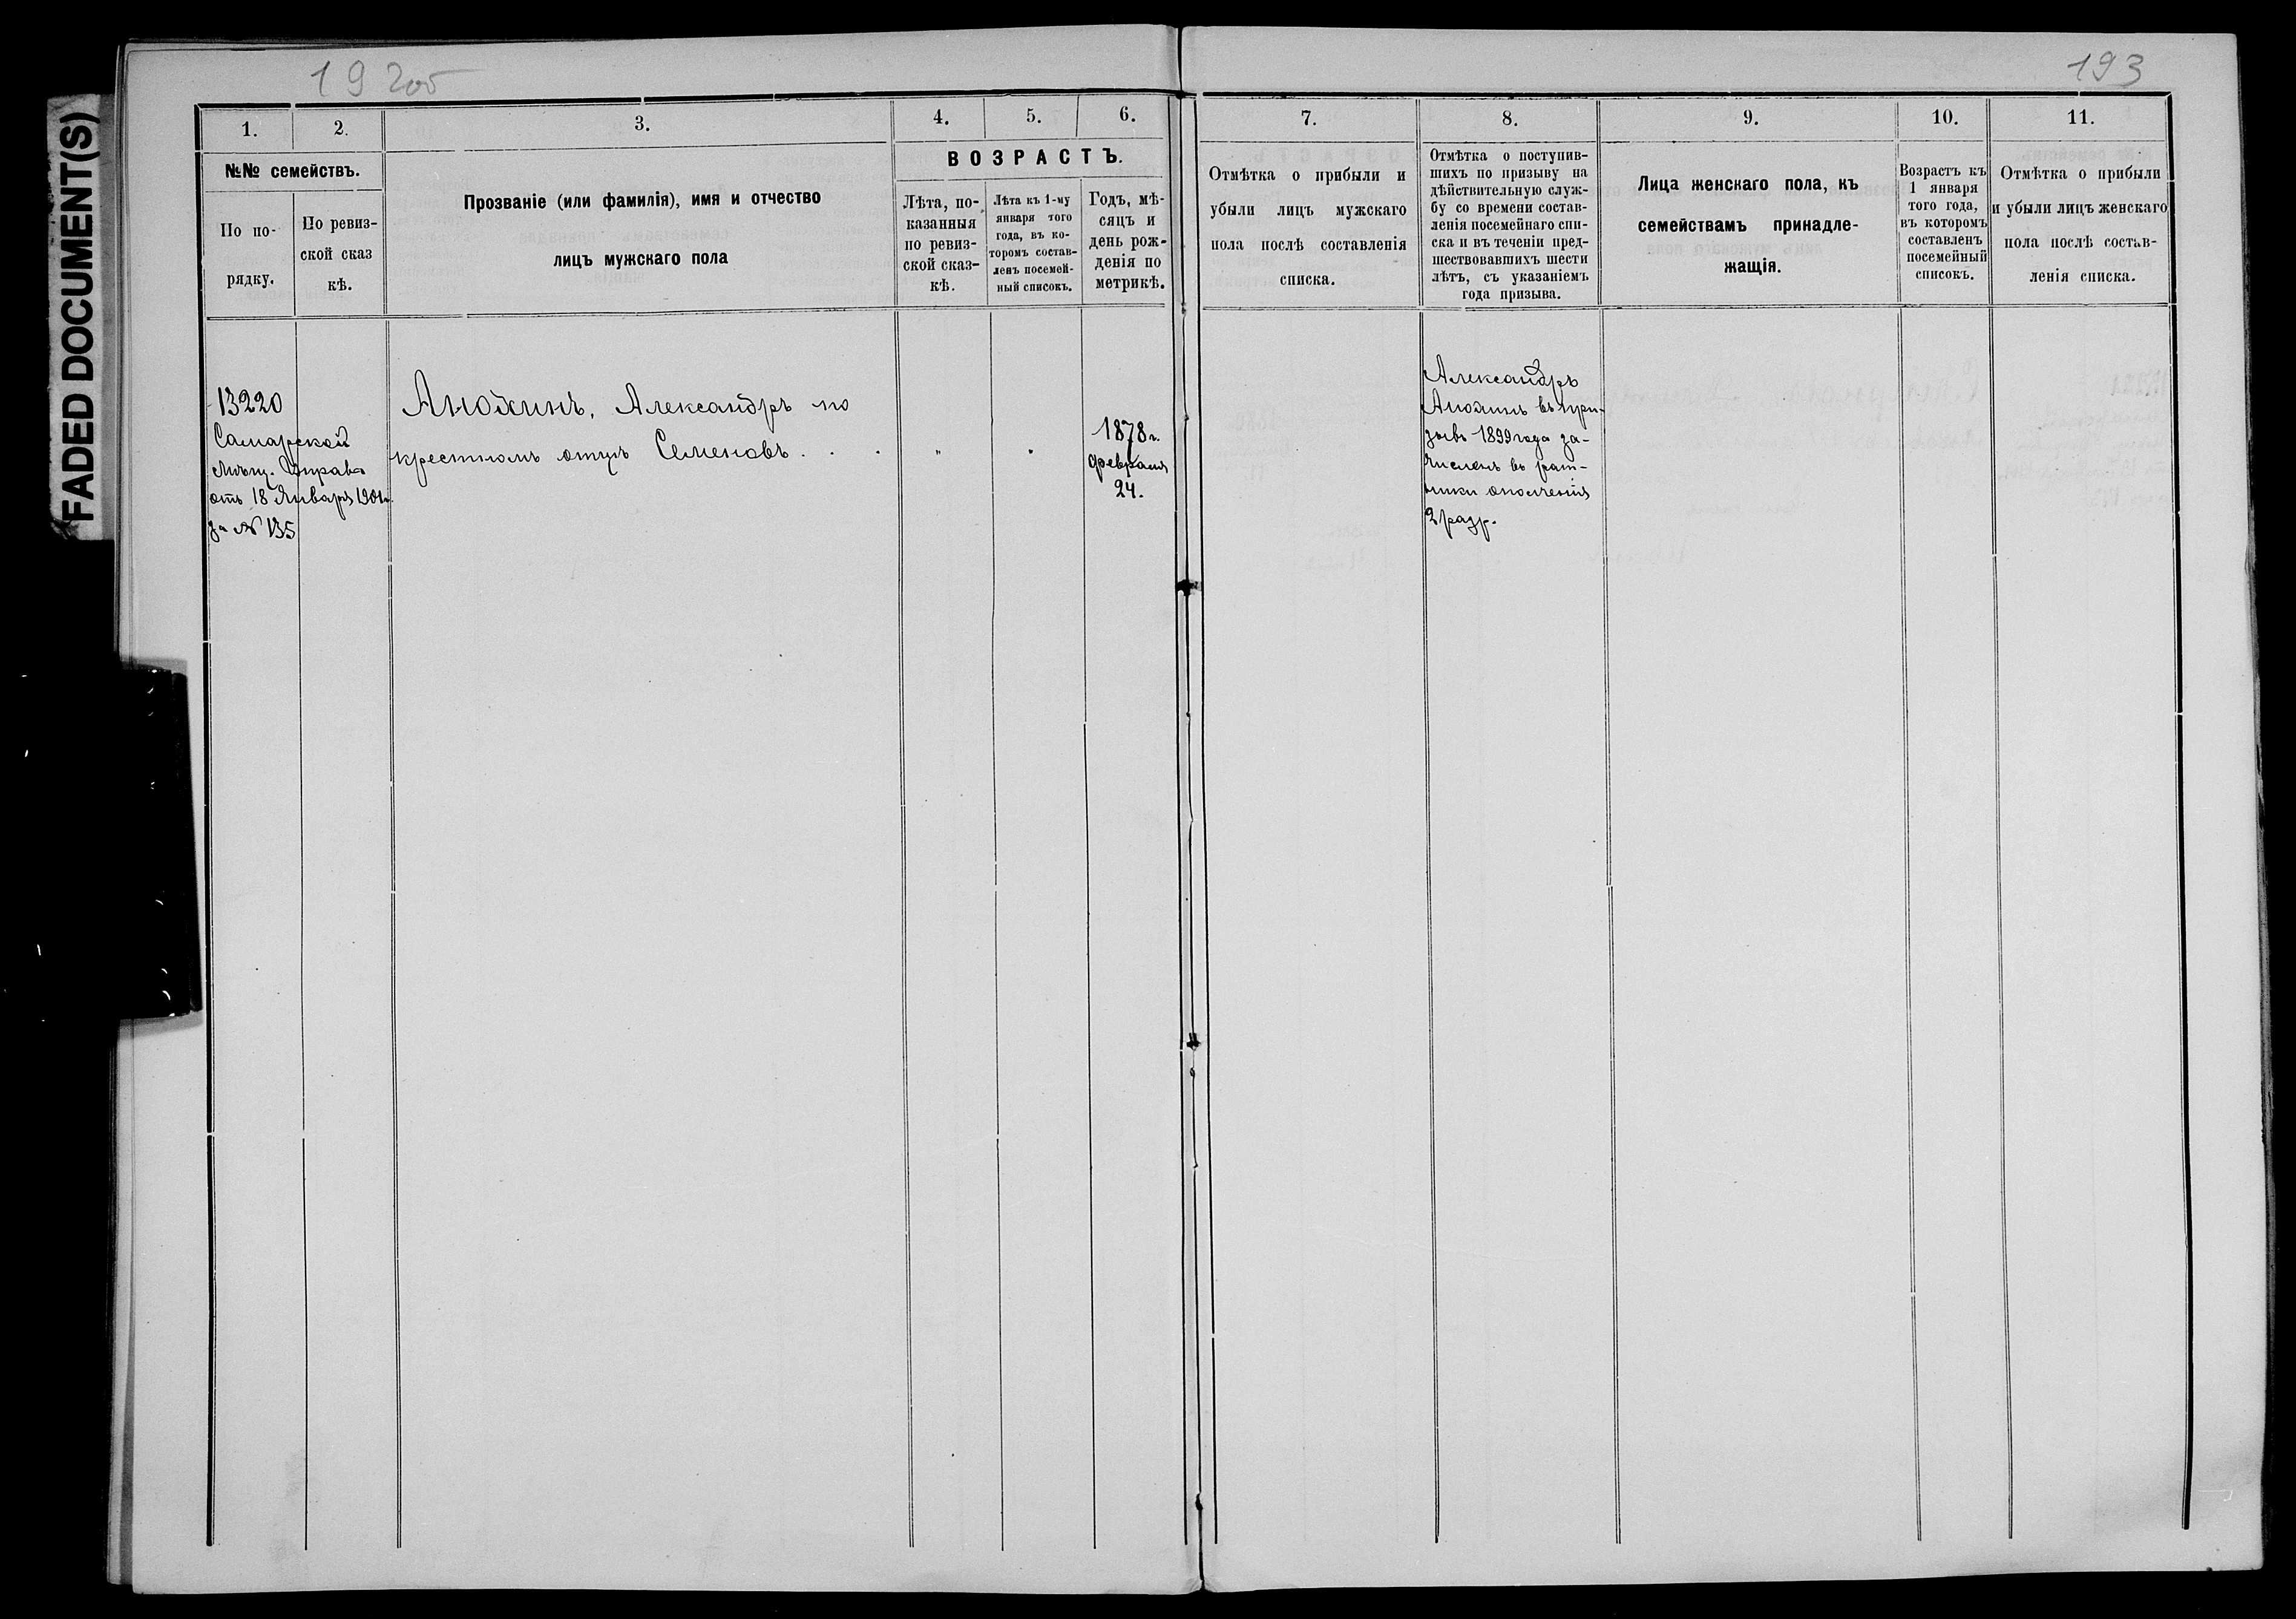 FADED DOCUMENT(S)
19
193
1.
2.
3.
4.
5.
6.
7.
8.
9.
10.
11.
№№ семействъ.
По по-
рядку.
По ревиз-
ской сказ
кѣ.
Прозваніе (или фамилія), имя и отчество
лицъ мужскаго пола
ВОЗРАСТЪ.
Лѣта, по-
казанныя
по ревиз-
ской сказ-
кѣ.
Лѣта къ 1-му
января того
года, въ ко-
торомъ состав-
ленъ посемей-
ный списокъ.
Годъ, мѣ-
сяцъ и
день рож-
денія по
метрикѣ.
Отмѣтка о прибыли и
убыли лицъ мужскаго
пола послѣ составленія
списка.
Отмѣтка о поступив-
шихъ по призыву на
дѣйствительную служ-
бу со времени состав-
ленія посемейнаго спи-
ска и въ теченіи пред-
шествовавшихъ шести
лѣтъ, съ указаніемъ
года призыва.
Лица женскаго пола, къ
семействамъ принадле-
жащія.
Возрастъ къ
1 января
того года,
въ которомъ
составленъ
посемейный
списокъ.
Отмѣтка о прибыли
и убыли лицъ женскаго
пола послѣ состав-
ленія списка.
13220
Самарской
мѣщ. Управа
отъ 18 Января 1901г.
за № 135
Анохинъ, Александръ по
крестномъ отцѣ Семеновъ . . .
"
"
1878 г.
Февраля
24.
Александръ
Анохинъ въ при-
зывъ 1899 года за-
численъ въ рат-
ники ополченія
2 разр.